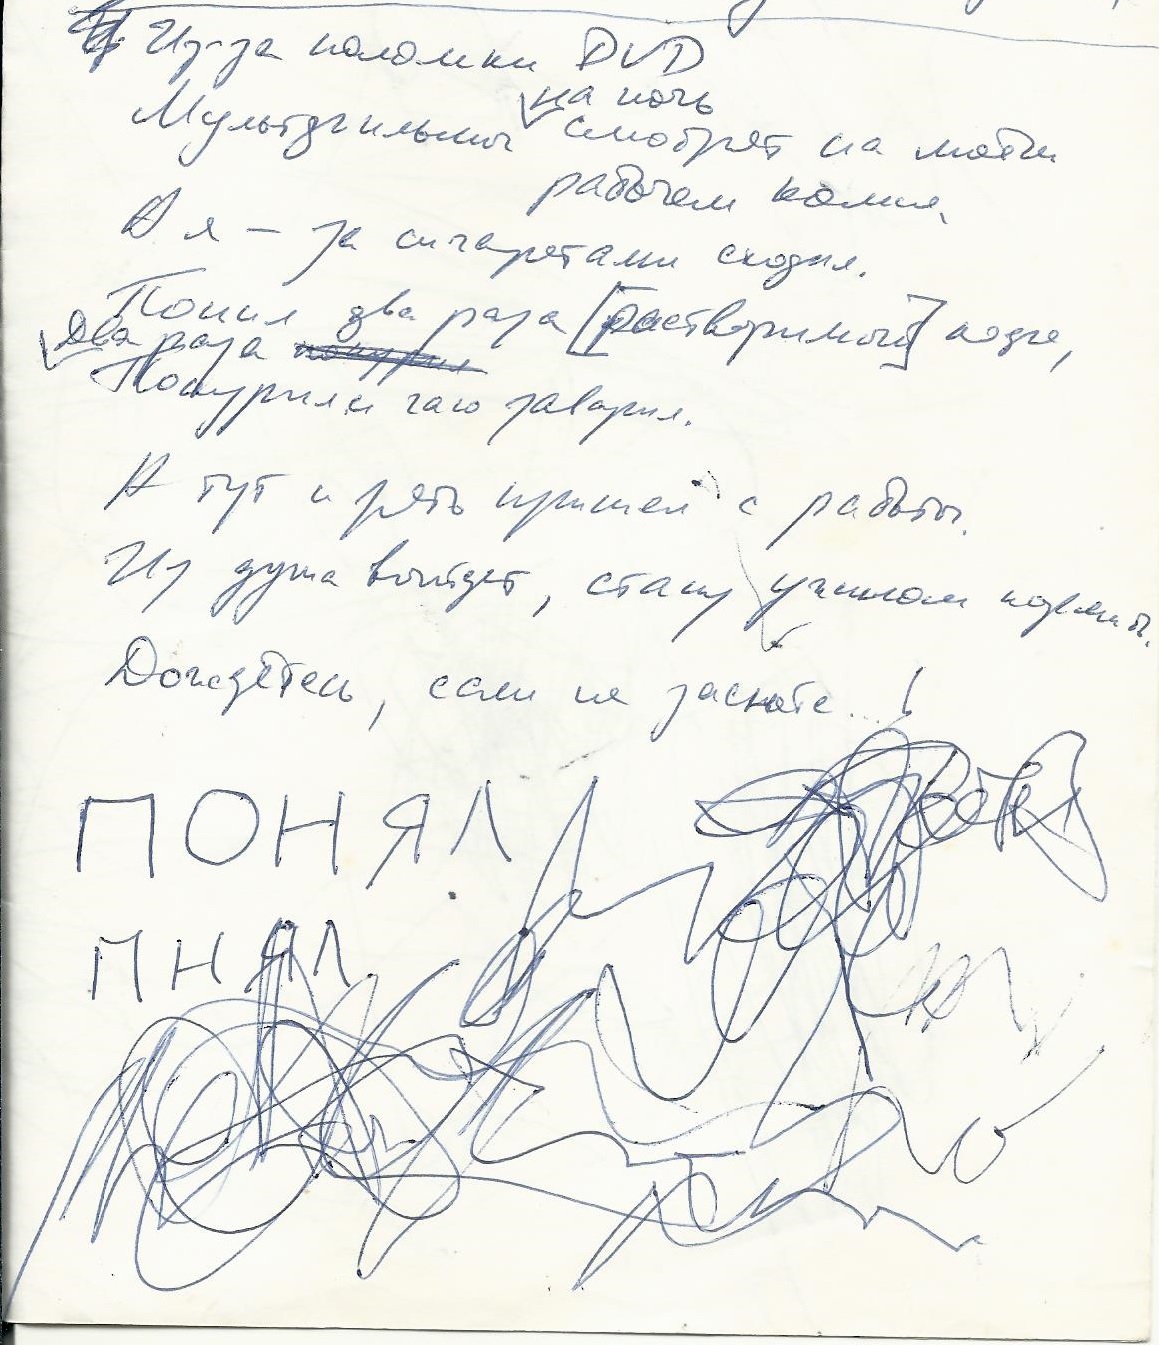 Из-за поломки DVD
на ночь
Мультфильмы смотрят на моём
рабочем компе,
А я – за сигаретами сходил.
Попил два раза [растворимый] кофе,
Два раза покурил
Покурил и чаю заварил.
А тут и зять пришел с работы.
Из душа выйдет, стану ужином кормить.
Дождётесь, если не заснёте...!
ПОНЯЛ
ПНЯЛ